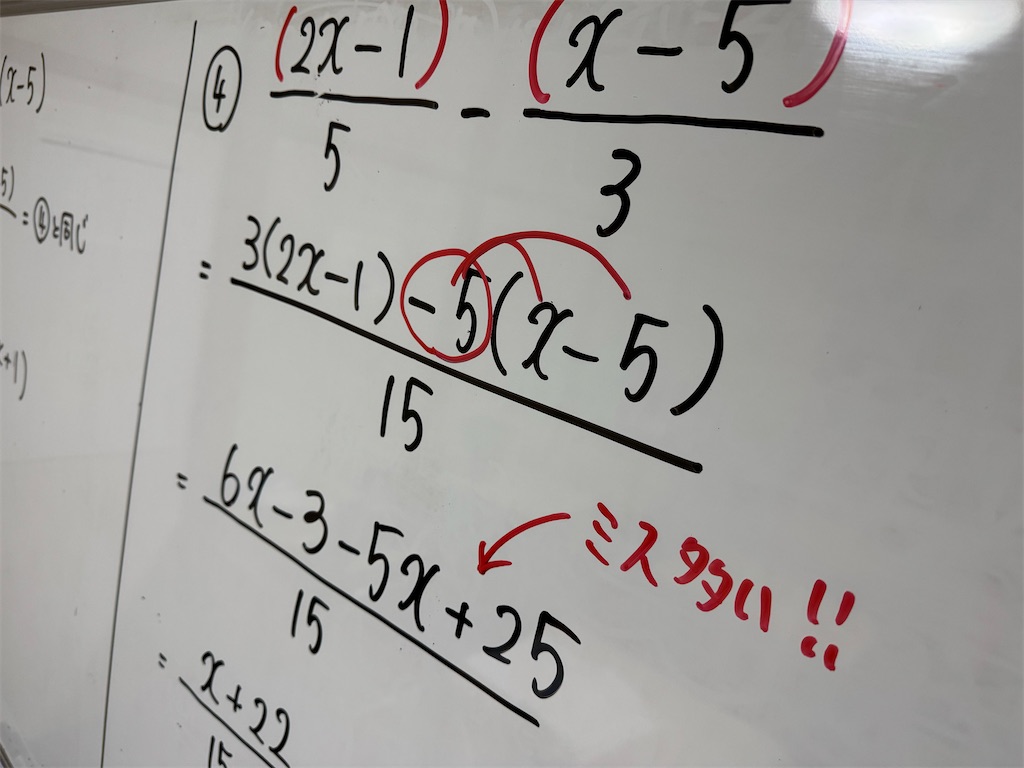 (x-5)
5)
= ④と同じ
x+1)
④ (2x-1)/5 - (x-5)/3
= 3(2x-1)-5(x-5)/15
= 6x-3-5x+25/15
ミス多い!!
= x+22/15